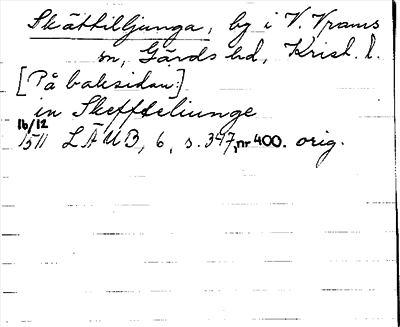 Skättilljunga, by i V. Vrams
sn, Gärds hd, Krist. l.
[På baksidan:]
in Skeffteliunge
16/12
1511 LÄUB, 6, s. 347, nr 400. orig.